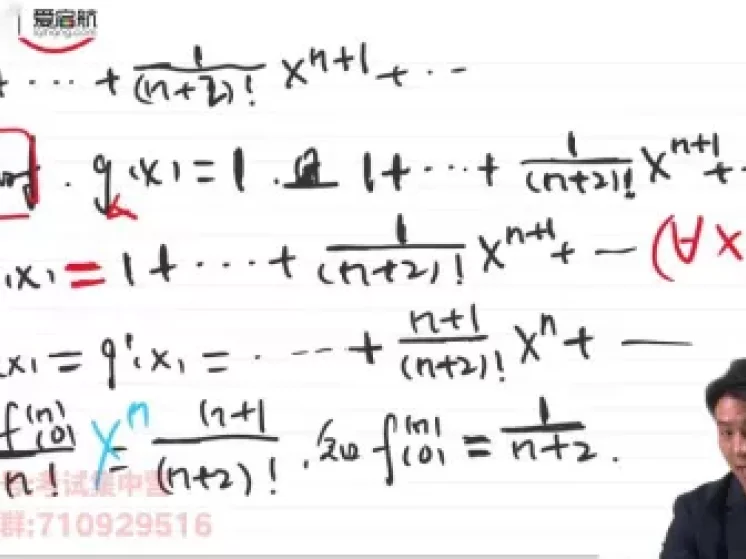 爱启航
iqihang.com
+ ··· + \frac{1}{(n+2)!} x^{n+1} + ··
. g(x) = 1 . 且 1 + ··· + \frac{1}{(n+2)!} x^{n+1} + ·
(x) = 1 + ··· + \frac{1}{(n+2)!} x^{n+1} + — (∀x)
(x) = g'(x) = · ··· + \frac{n+1}{(n+2)!} x^n + —
\frac{f^{(n)}(0)}{n!} x^n = \frac{(n+1}{(n+2)!} , 知 f^{(n)}(0) = \frac{1}{n+2} .
考试集中营
群:710929516